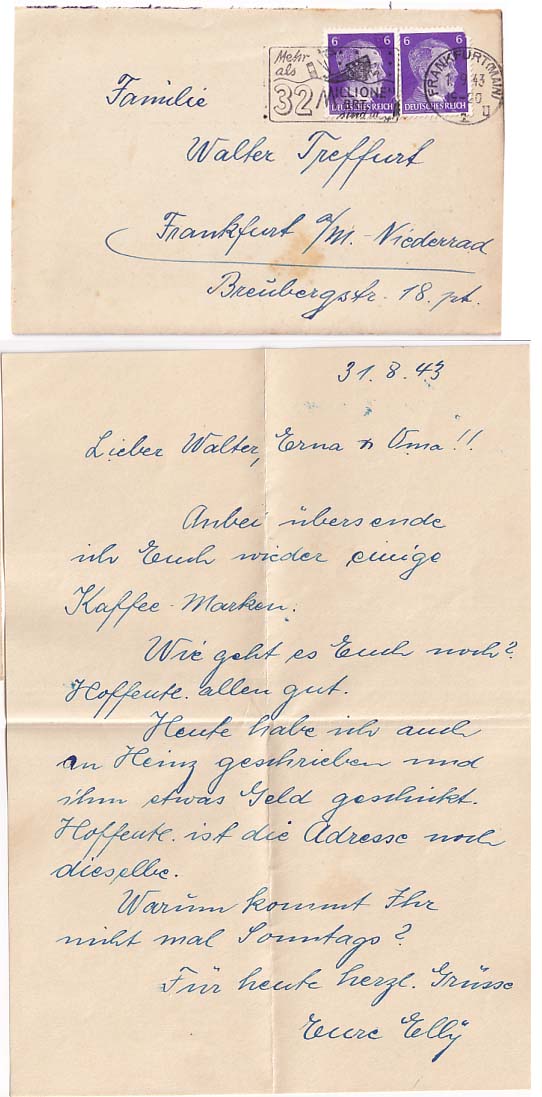 Mehr
als
32
MILLIONEN
6 6
DEUTSCHES REICH DEUTSCHES REICH
FRANKFURT (MAIN)
Familie
Walter Treffurt
Frankfurt a/M.-Niederrad
Breubergstr. 18. pt.
31.8.43
Lieber Walter, Erna & Oma!!
Anbei übersende
ich Euch wieder einige
Kaffee-Marken.
Wie geht es Euch noch?
Hoffentl. allen gut.
Heute habe ich auch
an Heinz geschrieben und
ihm etwas Geld geschickt.
Hoffentl. ist die Adresse noch
dieselbe.
Warum kommt Ihr
nicht mal Sonntags?
Für heute herzl. Grüsse
Eure Elly